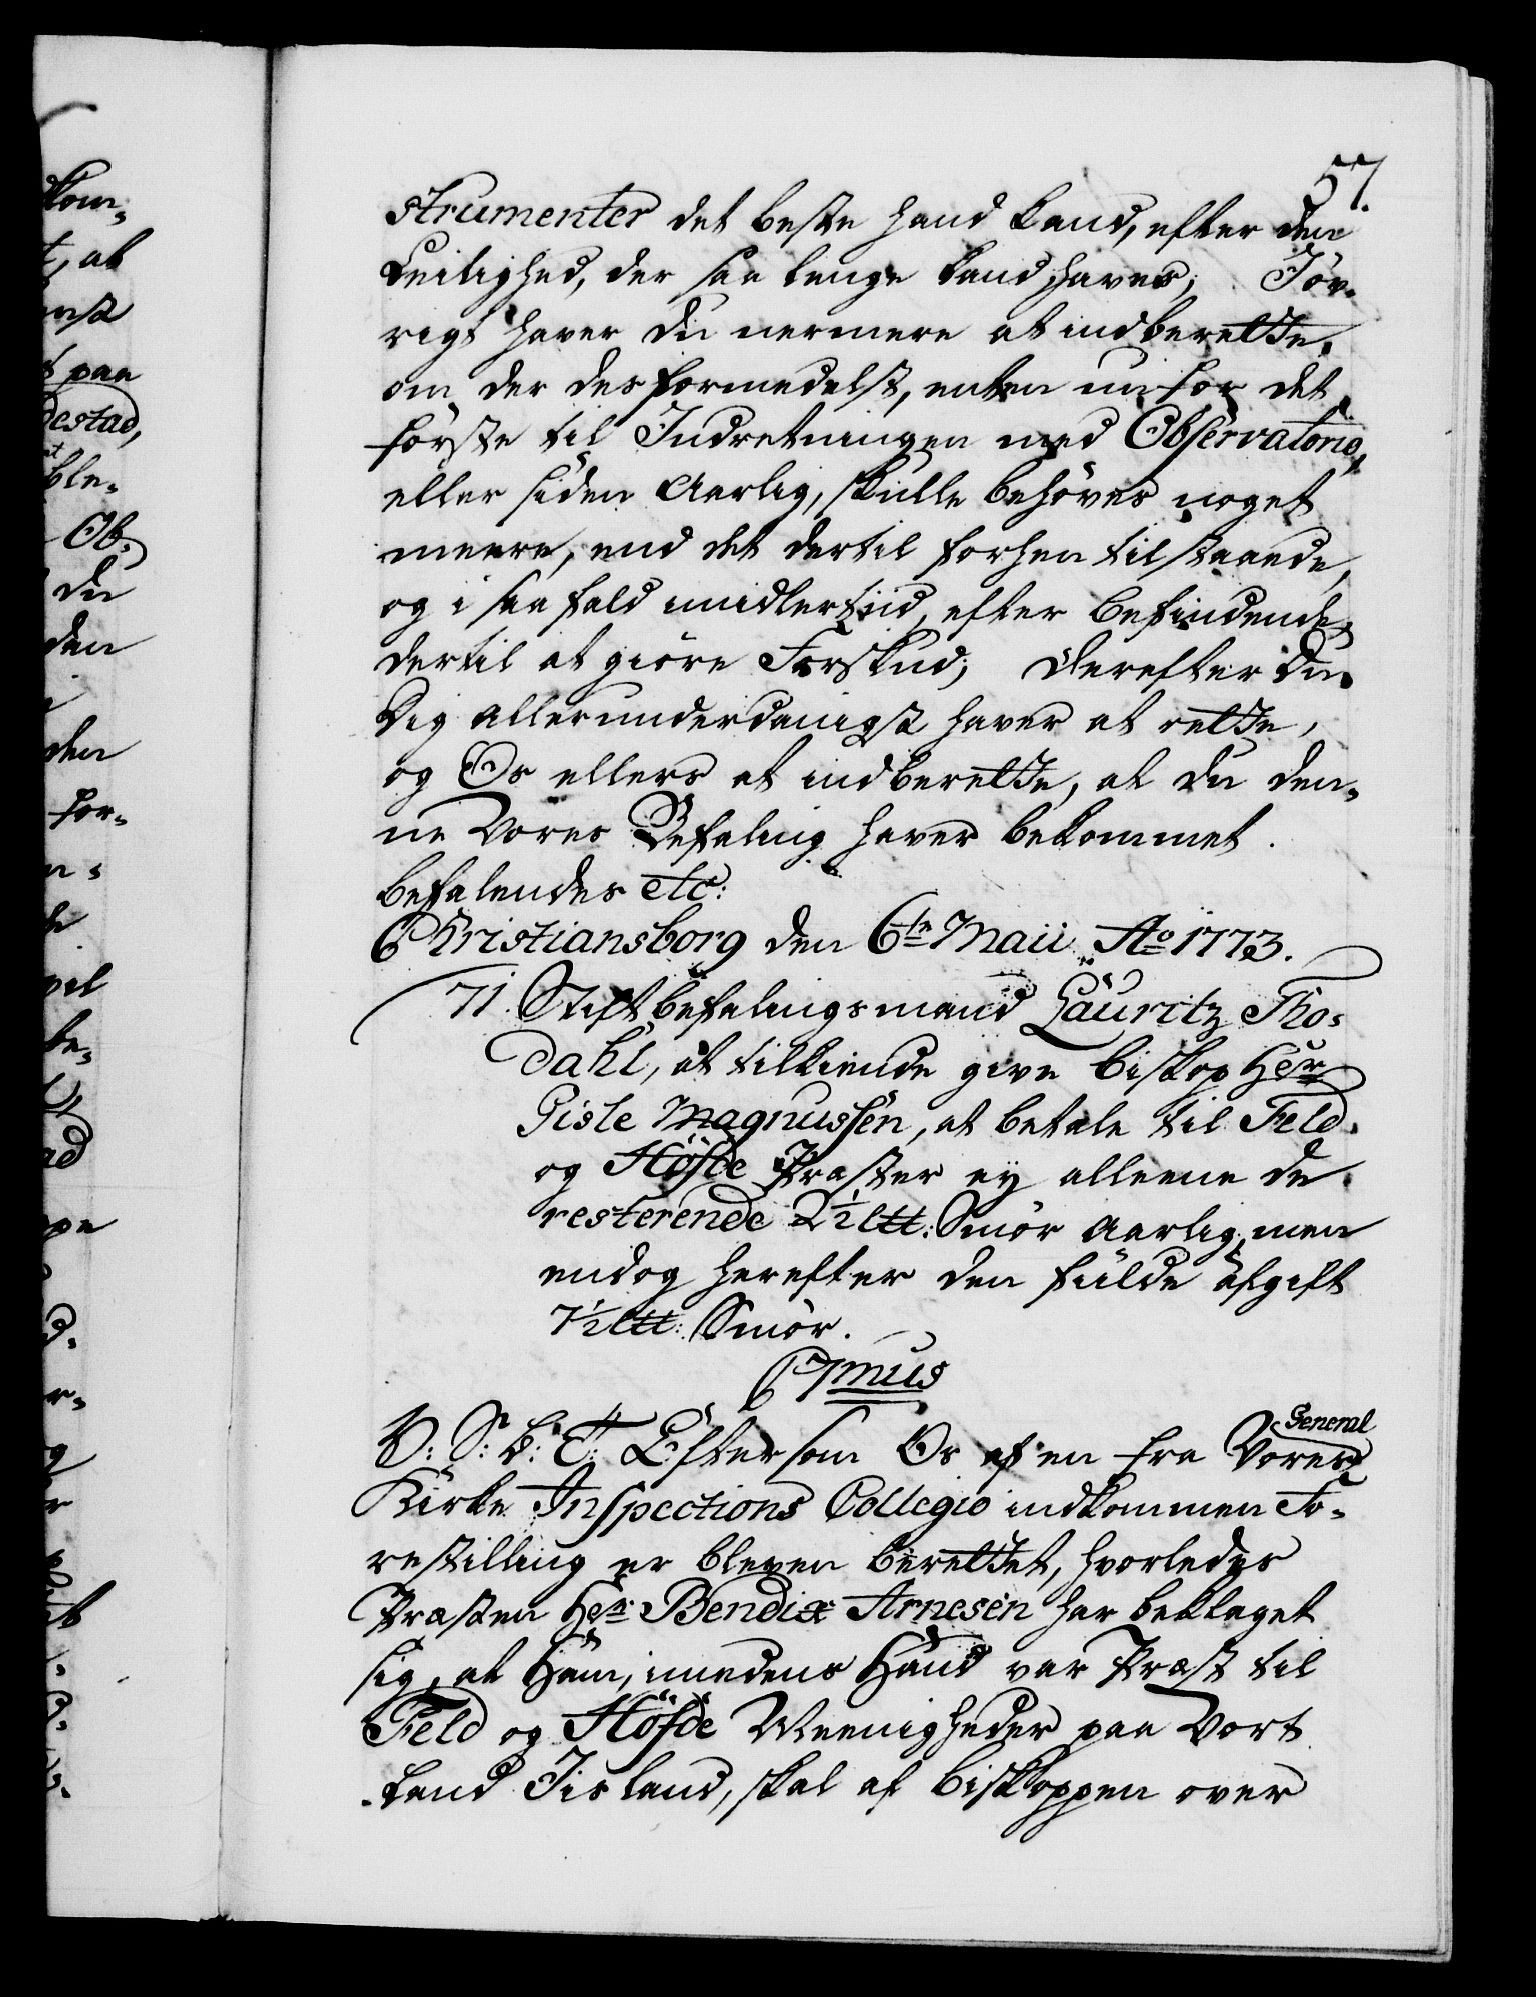 57.
strumenter det beste hand kand, efter den
Leilighed, der saa lenge kand haves; Iöv-
rigt haver du nermere at indberette,
om der desformedelst, enten nu for det
förste til Indretningen med Observatorio,
eller siden Aarlig, skulle behöves noget
meere, end det dertil forhen tilstaaede,
og i saa fald imidlertiid, efter befindende,
dertil at giöre Forskud; Derefter Du
Dig allerunderdanigst haver at rette,
og Os ellers at indberette, at du den-
ne Vores Befaling haver bekommet.
befalendes etc:
Christiansborg den 6te Maii Ao 1773.
71. Stiftbefalingsmand Lauritz Tho-
dahl, at tilkiende give Biskop Herr
Gisle Magnussen, at betale til Feld
og Höfde Præster ey alleene de
resterende 2½ Ltt: Smör Aarlig, men
endog herefter den fulde afgift
7½ Ltt: Smör.
C7mus
V: S: b: T: Eftersom Os af en fra Vores General
Kirke Inspections Collegio indkommen Fo-
restilling er bleven berettet, hvorledes
Præsten Herr Bendix Arnesen har beklaget
sig, at Ham, imedens Hand var Præst til
Feld og Höfde Meenigheder paa Vort
Land Iisland, skal af Biskoppen over
kom-
t, at
paa
destad,
ble-
Ob-
du
den
den
for-
n-
be-
ad